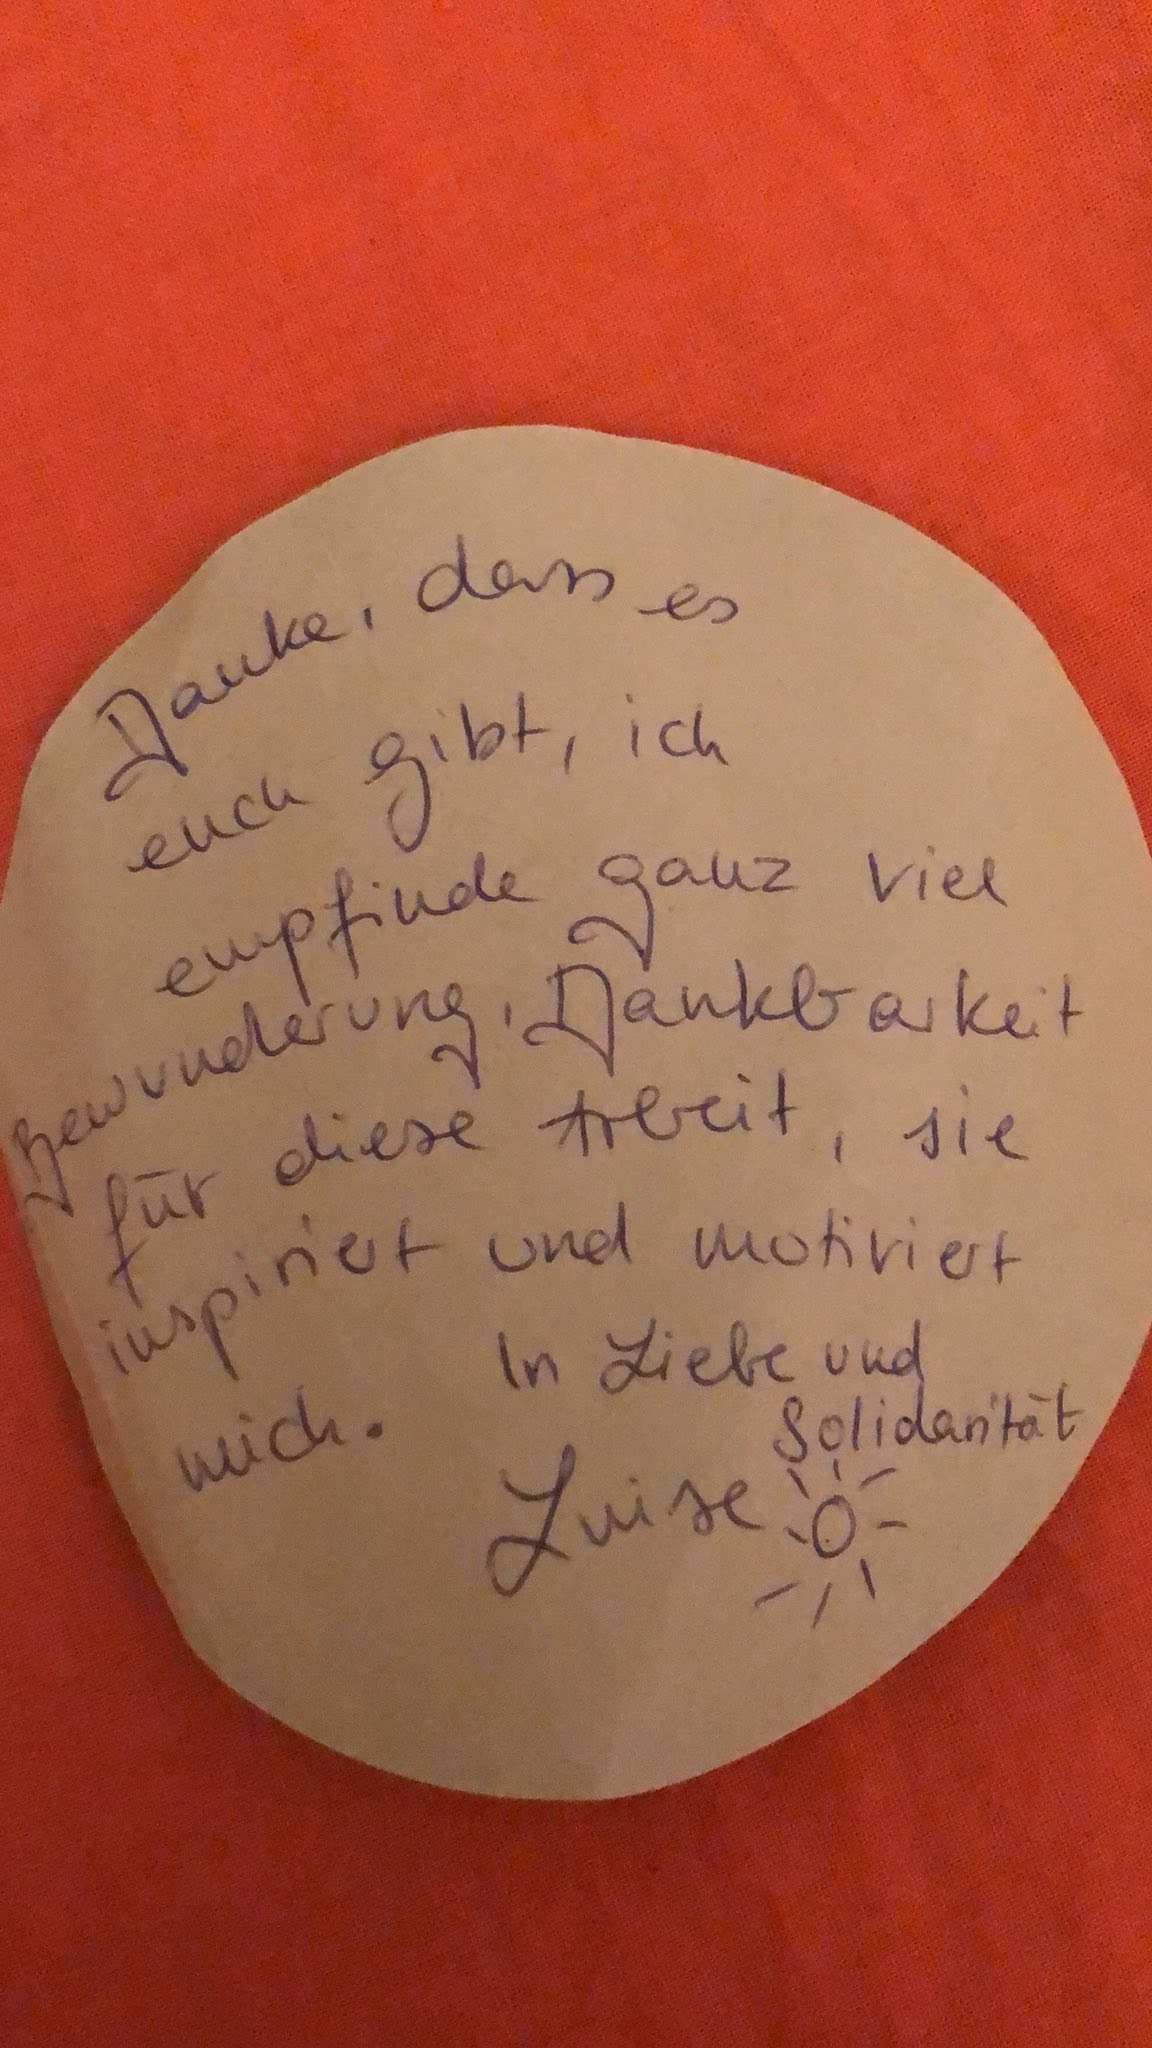 Danke, dass es
euch gibt, ich
empfinde ganz viel
Bewunderung, Dankbarkeit
für diese Arbeit, sie
inspiriert und motiviert
mich.
In Liebe und
Solidarität
Luise